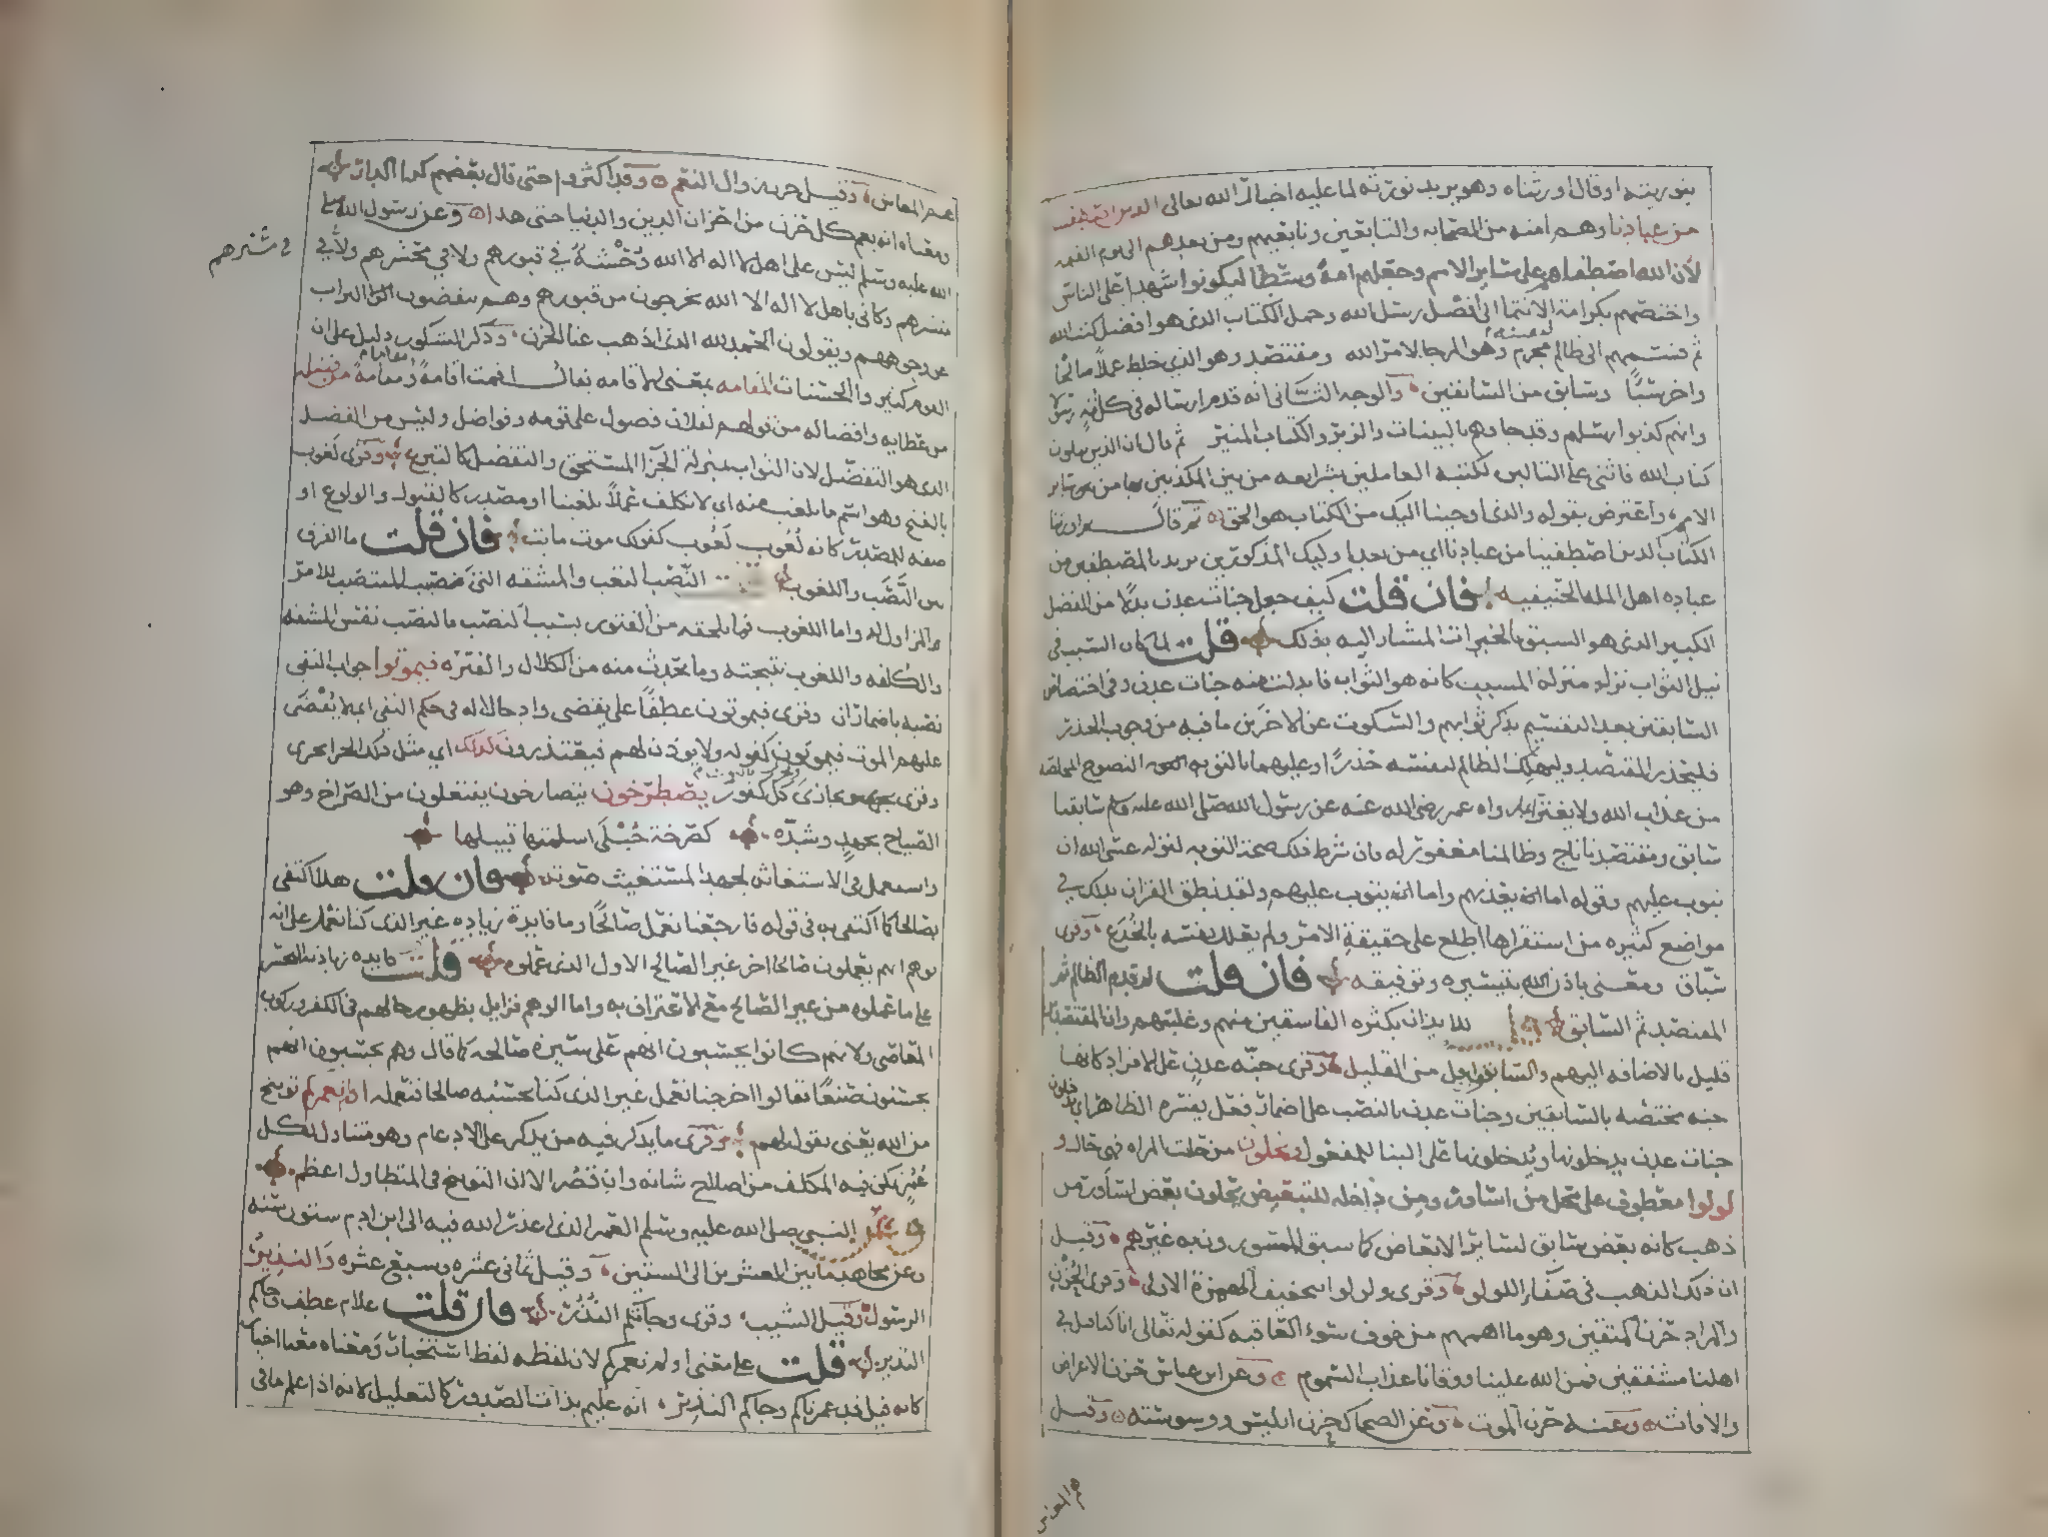 بتوريثه او قال اورثناه وهو يريد نورثه لما عليه اخبار الله تعالى الذين اصطفينا
من عبادنا وهم امته من الصحابه والتابعين وتابعيهم ومن بعدهم الى يوم القيمه
لأن الله اصطفاهم على سائر الامم وجعلهم امةً وسطا ليكونوا شهدا على الناس
واختصهم بكرامة الانتما الى افضل رسل الله وحمل الكتاب الذى هو افضل كتب الله
ثم قسمهم الى ظالم لنفسه مجرم وهو المرجا لامر الله ومقتصد وهو الذى خلط عملاً صالحًا
واخر سيًّا وسابق من السابقين والوجه الثانى انه قدم ارساله فى كل امة رسولا
وانهم كذبوا رسلهم وقد جاوهم بالبينات والزبر والكتاب المنير ثم قال ان الذين يتلون
كتاب الله فاثنى على التالين لكتبه العاملين بشرايعه من بين المكذبين بها من سائر
الامم واعترض بقوله والذى اوحينا اليك من الكتاب هو الحق ثم قال ثم اورثنا
الكتاب الذين اصطفينا من عبادنا اى من بعد اوليك المذكورين يريد بالمصطفين من
عباده اهل المله الحنيفيه فان قلت كيف جعل جنات عدن بدلا من الفضل
الكبير الذى هو السبق بالخيرات المشار اليه بذلك قلت لما كان السبب فى
نيل الثواب نزل منزلة المسبب كانه هو الثواب فابدلت عنه جنات عدن وفى اختصاص
السابقين بعد التقسيم بذكر ثوابهم والسكوت عن الاخرين ما فيه من وجوب الحذر
فليحذر المقتصد وليهلك الظالم لنفسه حذرًا وعليهما بالتوبه النصوح المخلصه
من عذاب الله ولا يغترا بما رواه عمر رضى الله عنه عن رسول الله صلى الله عليه وسلم سابقنا
سابق ومقتصدنا ناج وظالمنا مغفور له فان شرط ذلك صحة التوبه لقوله عسى الله ان
يتوب عليهم وقوله اما يعذبهم واما يتوب عليهم ولقد نطق القران بذلك فى
مواضع كثيره من استقراها اطلع على حقيقة الامر ولم يعلل نفسه بالخُدَع وقرى
سبّاق ومعنى باذن الله بتيسيره وتوفيقه فان قلت لم قدم الظالم ثم
المقتصد ثم السابق للايذان بكثره الفاسقين منهم وغلبتهم وان المقتصدين
قليل بالاضافه اليهم والسابقون اقل من القليل وقرى جنّه عدن على الافراد كانها
جنه مختصه بالسابقين وجنات عدن بالنصب على اضمار فعل يفسره الظاهر اى يدخلون
جنات عدن يدخلونها ويُدخلونها على البنا للمفعول ويحلون من حليت المراه فهى حال و
لولوا معطوف على محل من اساور ومن داخله للتبعيض يحلون بعض اساور من
ذهب كانه بعض سابق لسائر الابعاض كما سبق المسورون به غيرهم وقيل
ان ذلك الذهب فى صفآء اللولو وقرى ولولوا بتخفيف الهمزة الاولى وقرى الحُزْن
والمراد حزن المتقين وهو ما اهمهم من خوف سوء العاقبه كقوله تعالى انا كنا قبل فى
اهلنا مشفقين فمن الله علينا ووقانا عذاب السموم وعن ابن عباس حزن الاعراض
والافات وعنه حزن الموت وعن الضحاك حزن ابليس ووسوسته وقيل
هم المعاش
هم المعاش وقيل حزن زوال النعم وقد اكثروا حتى قال بعضهم كرا الدار
ومعناه انه يعم كل حزن من احزان الدين والدنيا حتى هذا وعن رسول الله صلى
الله عليه وسلم ليس على اهل لا اله الا الله وَحْشَةٌ فى قبورهم ولا فى محشرهم ولا فى
مسيرهم وكانى باهل لا اله الا الله يخرجون من قبورهم وهم ينفضون التراب
فى نشرهم
عن وجوههم ويقولون الحمد لله الذى اذهب عنا الحزن وذكر الشكور دليل على ان
القوم كثيرو الحسنات المقامه بمعنى الاقامه يقال اقمت اقامةً ومقامًا ومقامةً من فضله
من عطايه وافضاله من قولهم لفلان فضول على قومه وفواضل وليس من الفضل
الذى هو التفضّل لان الثواب بمنزلة الجزآ المستحق والتفضل كالتبرع وقرى لَغوب
بالفتح وهو اسم ما يلغب منه اى لا نتكلف عملاً يلغبنا او مصدر كالقبول والولوع او
صفه للمصدر كانه لُغُوب لَغُوب كقولك موت مايت فان قلت ما الفرق
بين النَّصَب واللغوب النّصَب التعب والمشقه التى تصيب المنتصب للامر
المزاول له واما اللغوب فما يلحقه من الفتور بسبب النصب فالنصب نفس المشقه
والكُلفه واللغوب نتيجته وما يحدث منه من الكلال والفتره فيموتوا جواب النفى
نصبه باضمار ان وقرى فيموتون عطفاً على يقضى وادخالا له فى حكم النفى اى لا يُقْضَى
عليهم الموت فيموتون كقوله ولا يوذن لهم فيعتذرون كذلك اى مثل ذلك الجزا يجزى
وقرى يجازَى كُل كفور ونجزى بالنون يصطرخون يتصارخون يفتعلون من الصّراخ وهو
الصّياح بجهد وشدّه كصرخة حُبْلَى اسلمتها قبيلها
واستعمل فى الاستغاثه لجهد المستغيث صوته فان قلت هلا اكتفى
بصالحا كما اكتفى به فى قوله فارجعنا نعمل صالحًا وما فايدة زياده غير الذى كنا نعمل على انه
يوهم انهم يعملون صالحا اخر غير الصالح الاول الذى عملوه قلت فايده زيادته التحسّر
على ما عملوه من غير الصّالح مع الاعتراف به واما الوهم فزايل بظهور حالهم فى الكفر وركوب
المعاصى ولانهم كانوا يحسبون انهم على سيرة صالحه كما قال وهم يحسبون انهم
يحسنون صنعًا فقالوا اخرجنا نعمل غير الذى كنا نحسبه صالحا فنعمله اولم نعمركم توبيخ
من الله يعنى يقول لهم وقرى ما يذكر فيه من يذكر على الادغام وهو متناول لكل
عُمُر تمكن فيه المكلف من اصلاح شانه وان قصُر الا ان التوبيخ فى المتطاول اعظم
النبى صلى الله عليه وسلم العمر الذى اعذر الله فيه الى ابن ادم ستون سنه
وعن مجاهد ما بين العشرين الى الستين وقيل ثمانى عشره وسبع عشره والنذير
الرسول وقيل الشيب وقرى وجاتكم النُذُر فان قلت علام عطف وجاكم
النذير قلت على معنى اولم نعمركم لان لفظه لفظ استخبار ومعناه معنا اخبار
كانه قيل قد عمرناكم وجاكم النذير انه عليم بذات الصدور كالتعليل لانه اذا علم ما فى